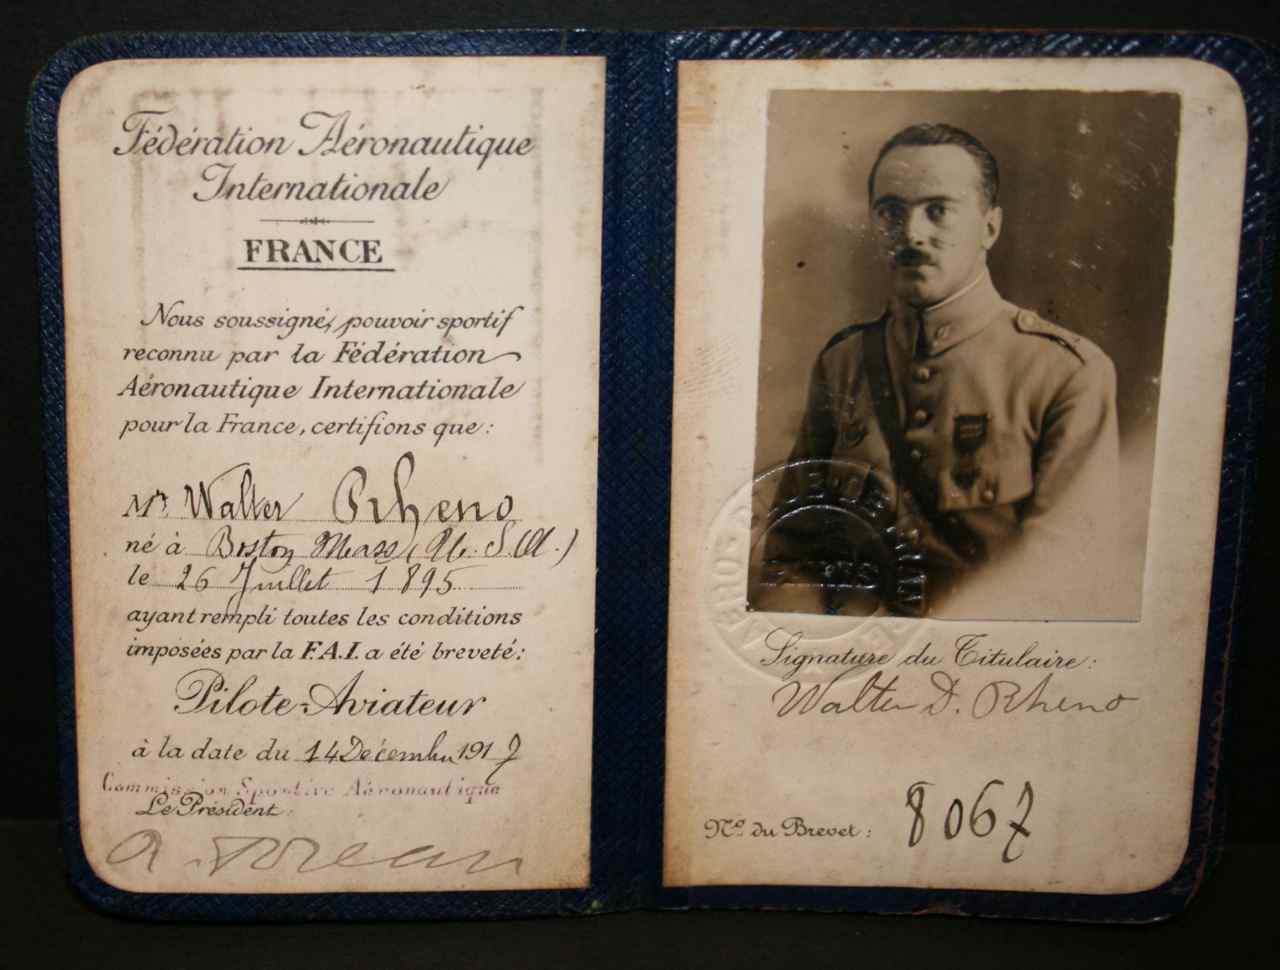 Fédération Aéronautique
Internationale
FRANCE
Nous soussignés, pouvoir sportif
reconnu par la Fédération
Aéronautique Internationale
pour la France, certifions que :
Mr. Walter Rheno
né à Boston Mass (U.S.A.)
le 26 Juillet 1895
ayant rempli toutes les conditions
imposées par la F.A.I. a été breveté :
Pilote-Aviateur
à la date du 14 Décembre 1917
Commission Sportive Aéronautique
Le Président :
Signature du Titulaire :
Walter D. Rheno
No. du Brevet : 8067